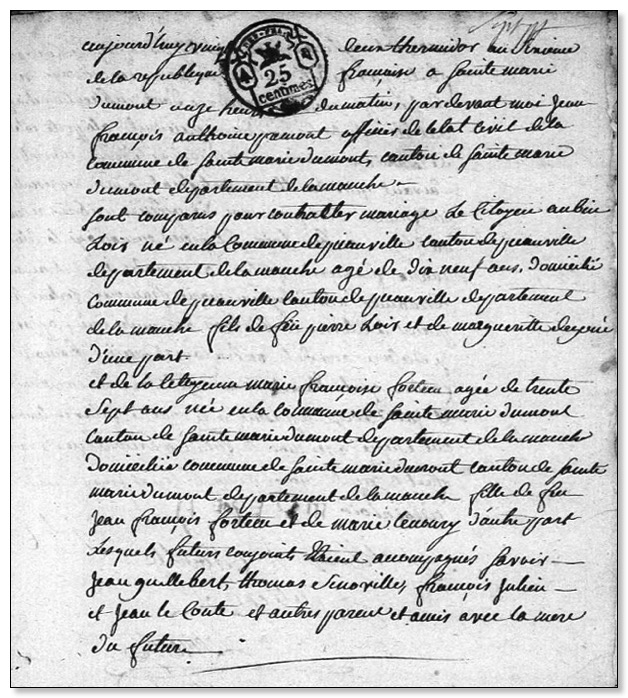 aujourd'huy vingt deux thermidor an
REP. FRA.
25
centimes
de la republique francaise a Sainte marie
Dumont onze heures du matin, par devant moi Jean
françois anthoine pamont officier de letat Civil de la
Commune de Sainte marie dumont, canton de Sainte marie
dumont departement de la manche —
Sont comparus pour contracter mariage Le Citoyen aubin
Loir né en la Commune de picauville canton de picauville
departement de la manche agé de dix neuf ans, domicilié
commune de picauville Canton de picauville departement
de la manche fils de feu pierre Loir et de margueritte
d'une part
et de la Citoyenne marie françoise forteau agée de trente
Sept ans née en la commune de Sainte marie dumont
Canton de Sainte marie dumont departement de la manche
domiciliée commune de Sainte marie dumont canton de Sainte
marie dumont departement de la manche fille de feu
Jean françois forteau et de marie d'autre part
Lesquels futurs conjoints Etoient accompagnés savoir —
Jean guillebert, thomas Sinoville, françois Julien —
et Jean le Conte et autres parens et amis avec la mere
du futur.